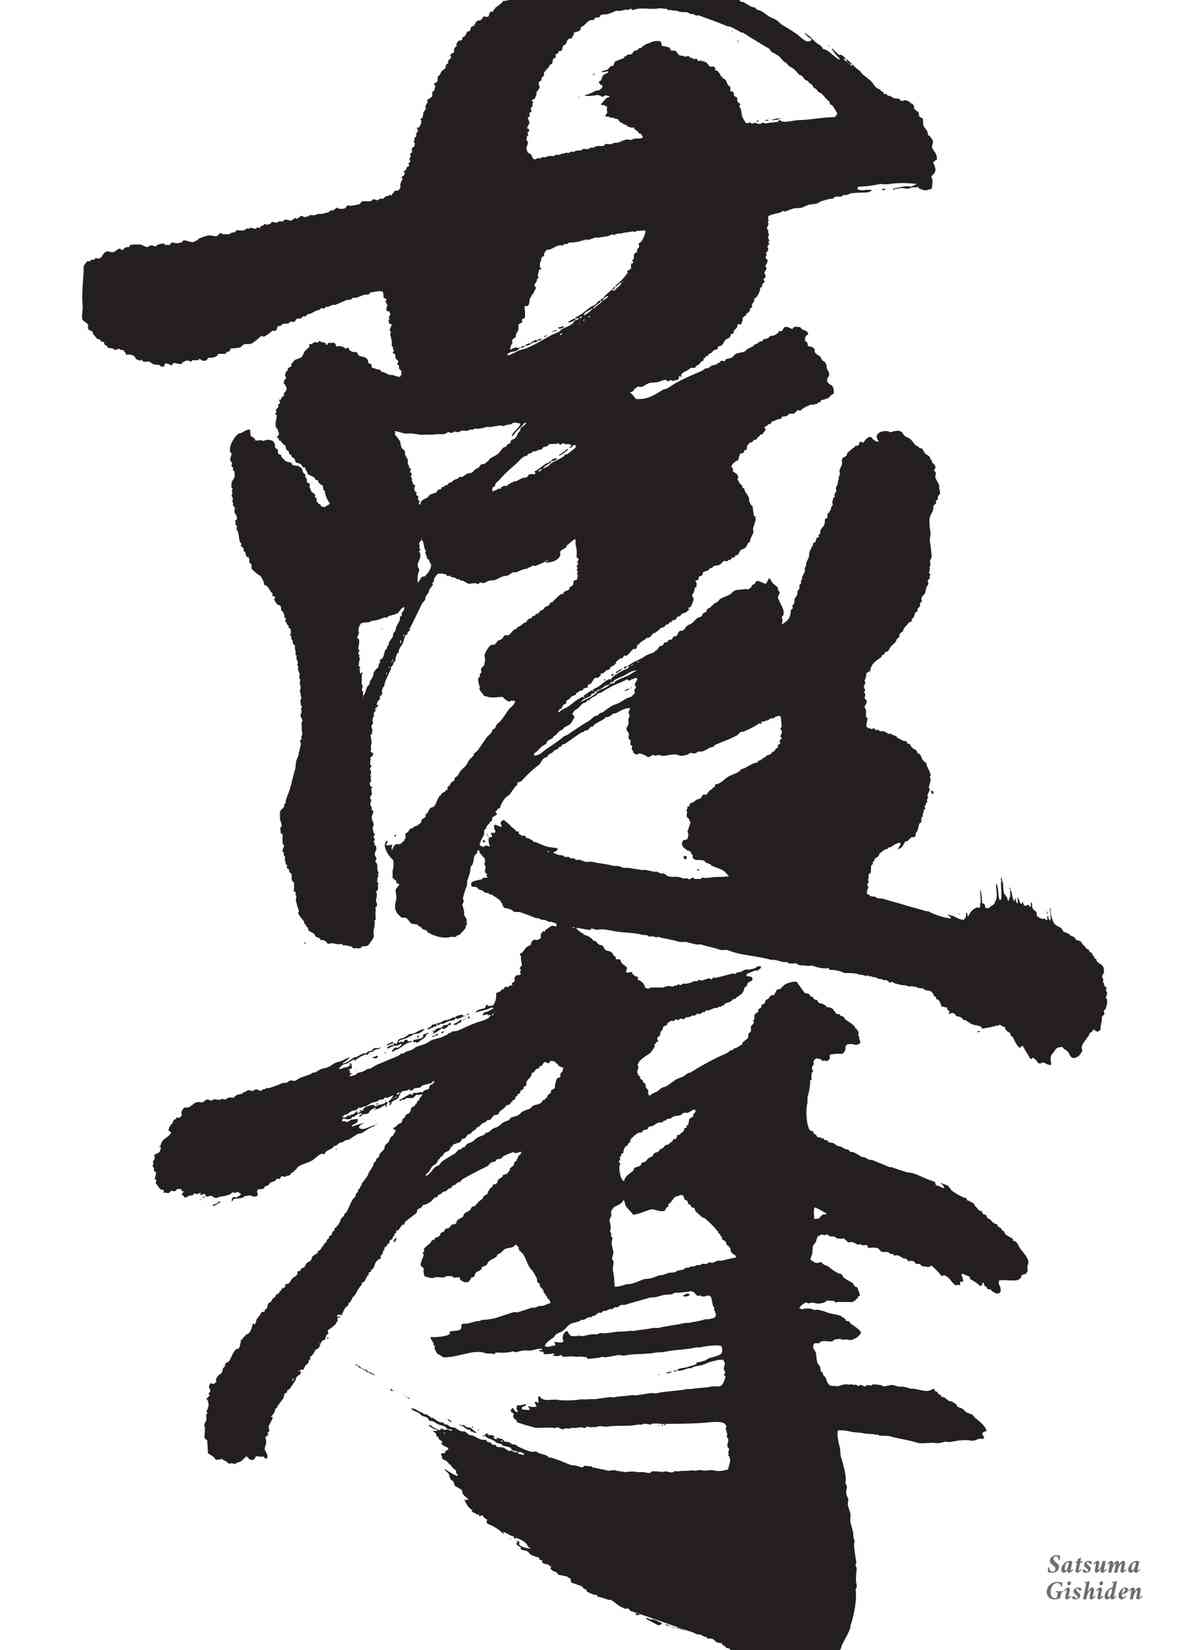 薩
摩
Satsuma
Gishiden